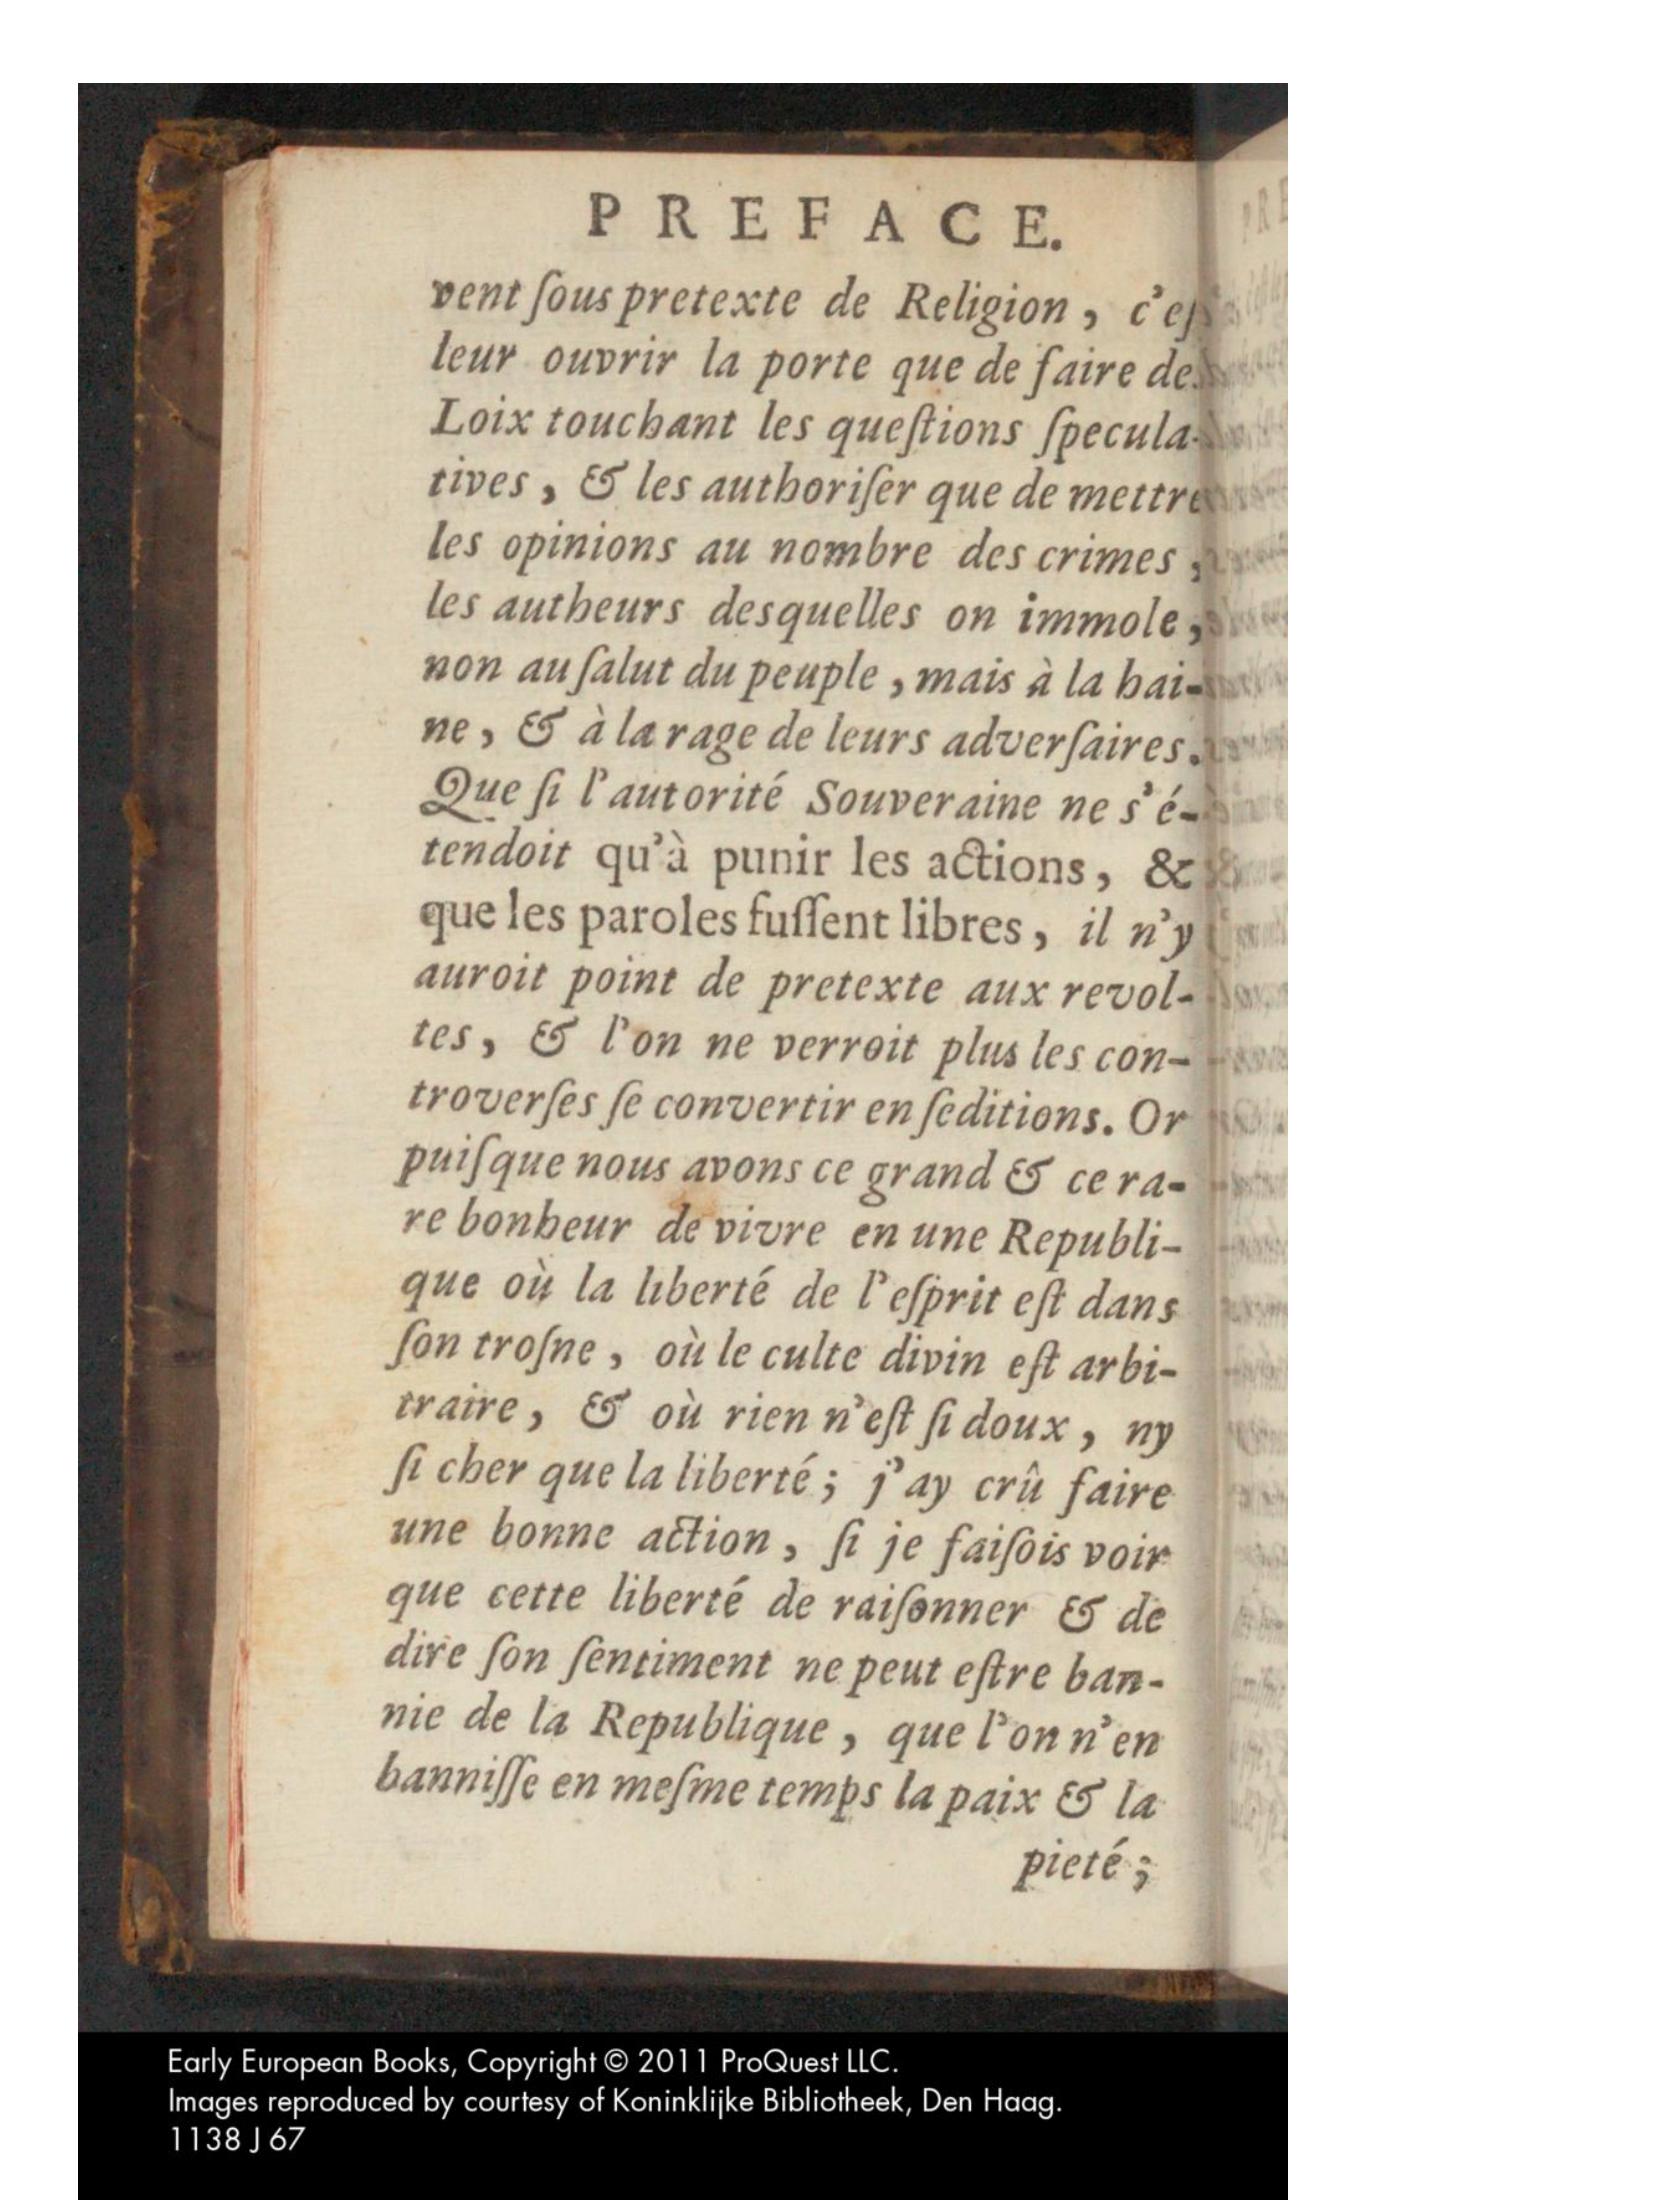 PREFACE.
vent ſous pretexte de Religion, c'eſ
leur ouvrir la porte que de faire de
Loix touchant les queſtions ſpecula-
tives, & les authoriſer que de mettre
les opinions au nombre des crimes,
les autheurs desquelles on immole,
non au ſalut du peuple, mais à la hai-
ne, & à la rage de leurs adverſaires.
Que ſi l'autorité Souveraine ne s'é-
tendoit qu'à punir les actions, &
que les paroles fuſſent libres, il n'y
auroit point de pretexte aux revol-
tes, & l'on ne verroit plus les con-
troverſes ſe convertir en ſeditions. Or
puiſque nous avons ce grand & ce ra-
re bonheur de vivre en une Republi-
que où la liberté de l'eſprit eſt dans
ſon troſne, où le culte divin eſt arbi-
traire, & où rien n'eſt ſi doux, ny
ſi cher que la liberté; j'ay crû faire
une bonne action, ſi je faiſois voir
que cette liberté de raiſonner & de
dire ſon ſentiment ne peut eſtre ban-
nie de la Republique, que l'on n'en
banniſſe en meſme temps la paix & la
pieté;
Early European Books, Copyright © 2011 ProQuest LLC.
Images reproduced by courtesy of Koninklijke Bibliotheek, Den Haag.
1138 J 67